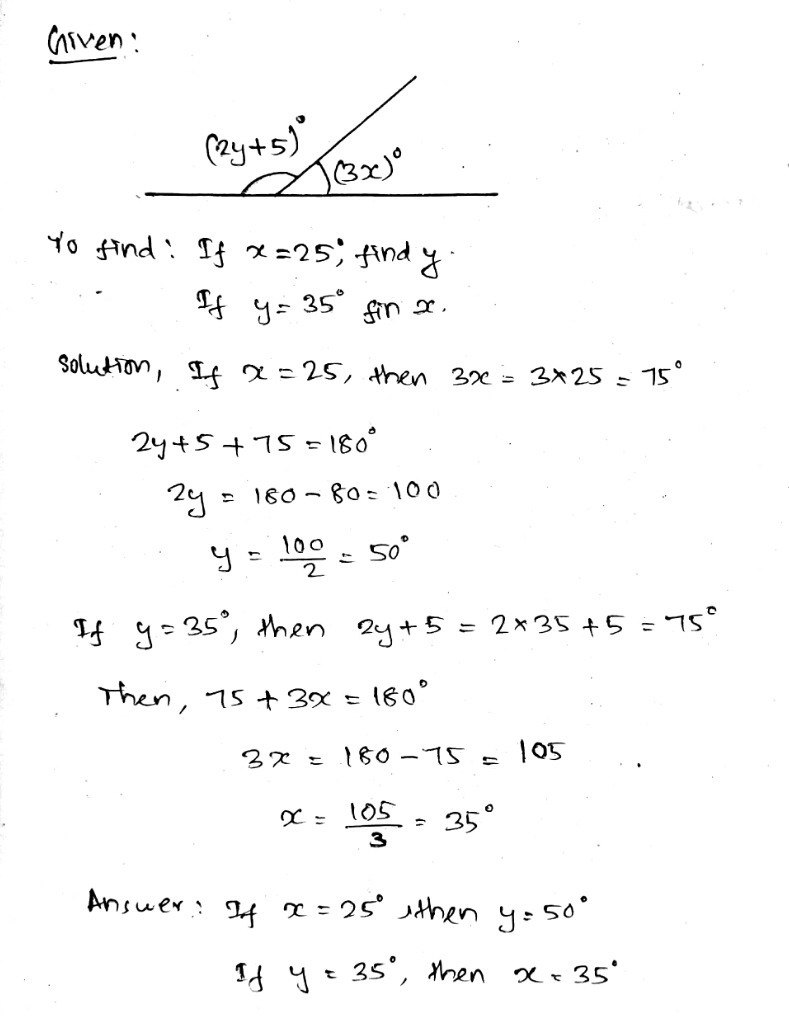 Given:
(2y+5)°
(3x)°
To find: If x=25°, find y.
If y=35° fin x.
Solution, If x=25, then 3x = 3×25 = 75°
2y+5+75=180°
2y = 180-80=100
y = 100/2 = 50°
If y=35°, then 2y+5 = 2×35+5=75°
Then, 75+3x=180°
3x = 180-75 = 105
x = 105/3 = 35°
Answer: If x=25° then y=50°
If y=35°, then x=35°